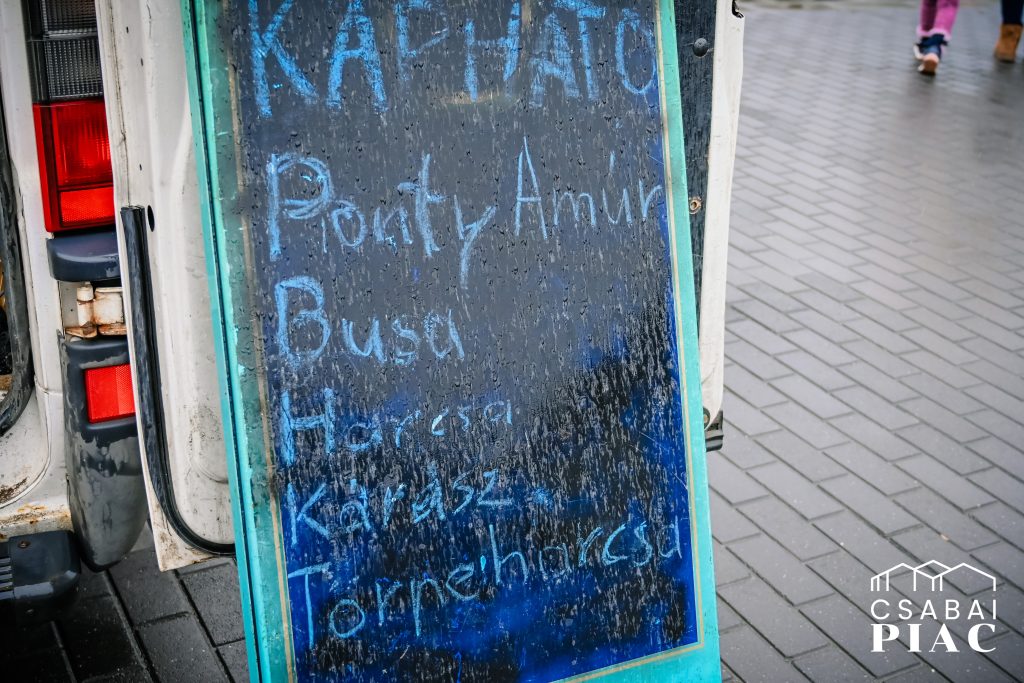 KAPHATÓ
Ponty Amúr
Busa
Harcsa
Kárász
Törpeharcsa
CSABAI
PIAC